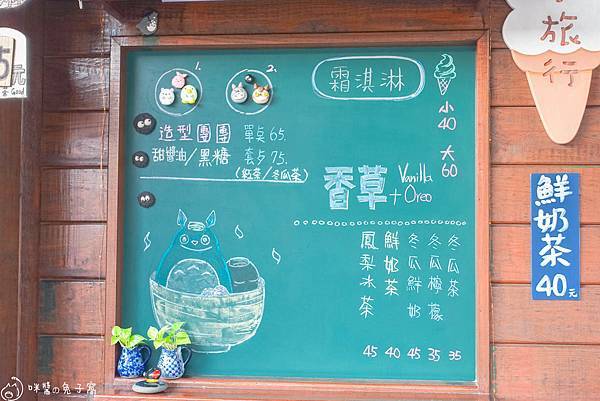 5元
Good
1.
2.
造型團團 單点 65.
甜醬油/黑糖 套5 75.
(紅茶/冬瓜茶)
霜淇淋
小
40
大
60
香草
Vanilla
+ Oreo
鳳梨冰茶 45
鮮奶茶 40
冬瓜鮮奶 45
冬瓜檸檬 35
冬瓜茶 35
旅行
鮮奶茶
40元
咪醬の兔子窩